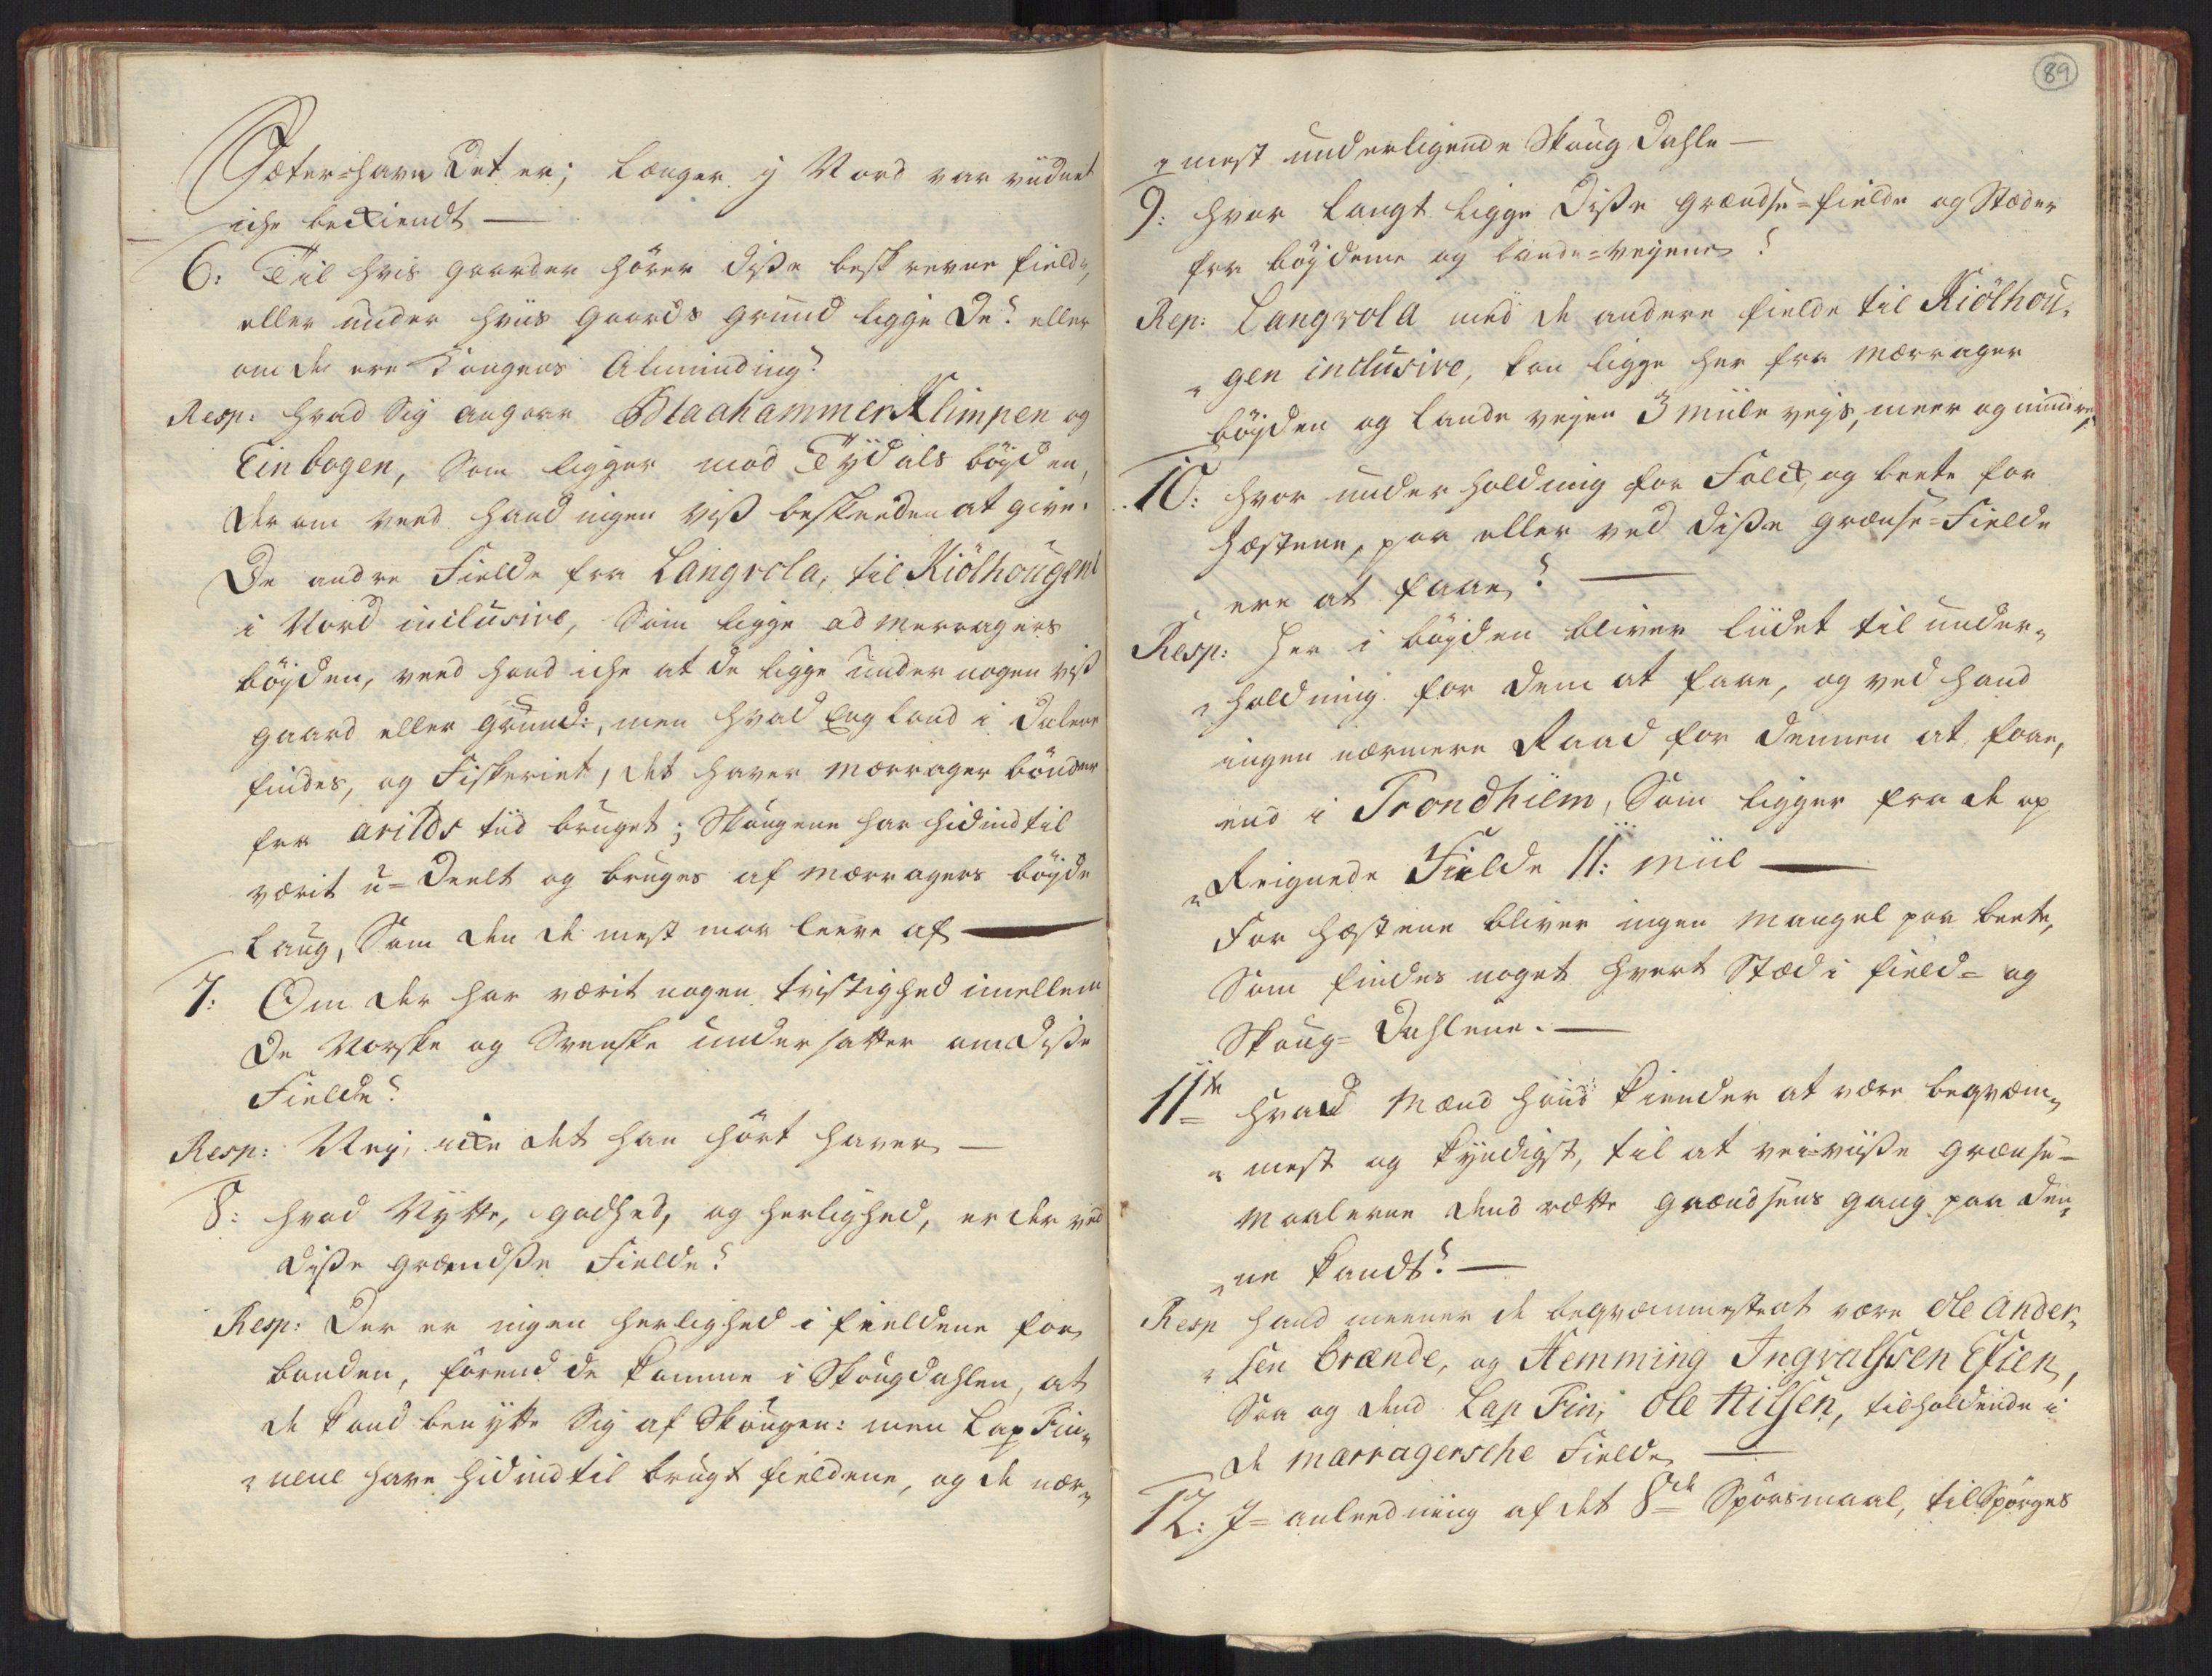 Sæter-havn det er; længer ij Nord var vidnet
iche beckiendt —
6: Til hvis gaarder hörer disse beskrevne fielde,
eller under hviis gaards grund ligge De? eller
om de ere Kongens Alminding?
Resp: hvad Sig angaar Blaahammer Klimpen og
Einbogen, Som ligger mod Tydals böyden,
der om veed hand ingen viss beskeeden at give.
De andre Fielde fra Langrola, til Kiölhougen
i Nord inclusive, Som ligge ad Merragers
böyden, veed hand iche at de ligge under nogen viss
gaard eller grund:, men hvad Eng Land i dalene
findes, og Fiskeriet, det haver Mærrager bönder
fra arilds tiid bruget; Skougene har hidindtil
værit u-deelt og bruges af Mærragers böyde
Laug, Som den de mest maa leeve af —
7: Om der har værit nogen tvistighed imellem
De Norske og Svenske undersatter om disse
Fielde?
Resp: Neÿ, icke det han hört haver —
8: hvad Nytte, godhed, og herlighed, er der ved
disse grændsse Fielde?
Resp: Der er ingen herlighed i fieldene for
bonden, förend de komme i Skougdahlen, at
de kand benytte Sig af Skougen: men Lap Fin-
nene have hidindtil brugt fieldene, og de nær-
89
mest underligende Skoug dahle —
9: hvor langt ligge disse grændse-fielde og Stæder
fra böydene og lande-veyene?
Rep: Langrola med de andere fielde til Kiölhou-
gen inclusive, kan ligge her fra Mærrager
böyden og lande veyen 3 miile veys, meer og mindre,
10: hvor underholdning for Folck, og beete for
Hæstene, paa eller ved disse grænse-Fielde
ere at faae? —
Resp: her i böyden bliver lidet til under-
holdning for dem at faae, og ved hand
ingen nærmere Raad for dennem at faae,
end i Trondhiem, Som ligger fra de op
Reignede Fielde 11: miil —
For hæstene bliver ingen mangel paa beete,
Som findes noget hvert Stæd i field- og
Skoug-Dahlene. —
11te hvad Mænd hand kiender at være beqvæm-
mest og kyndigst, til at vei-viisse grænse-
Maalerne dend rætte grændsens gang paa den-
ne kandt? —
Resp hand meener de beqvæmmeste at være Ole Ander-
sen Brænde, og Hemming Ingvalssen Efsen,
Saa og dend Lap Fin, Ole Nilsen, tilholdende i
de marragersche Fielde —
12: I- anleedning af det 8de Spörsmaal, tilspörges